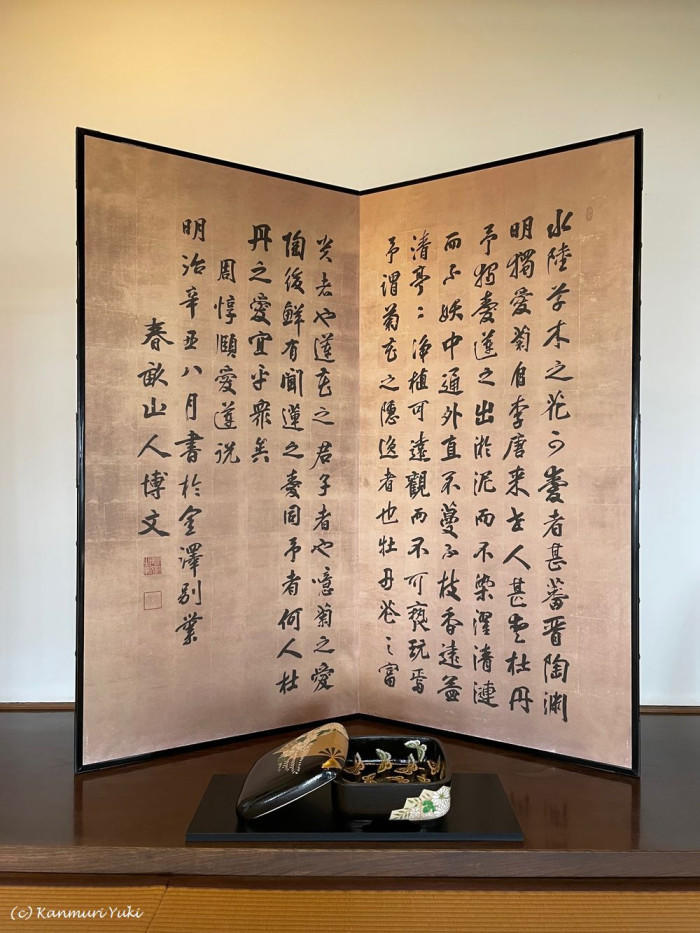 水陸草木之花可愛者甚蕃晋陶渊
明獨愛菊自李唐来世人甚愛牡丹
予獨愛蓮之出淤泥而不染濯清漣
而不妖中通外直不蔓不枝香遠益
清亭々浄植可遠觀而不可褻玩焉
予謂菊花之隱逸者也牡丹花之富
貴者也蓮花之君子者也噫菊之愛
陶後鮮有聞蓮之愛同予者何人牡
丹之愛宜乎衆矣
周惇頤愛蓮説
明治辛丑八月書於金澤別業
春畝山人博文
(c) Kanmuri Yuki